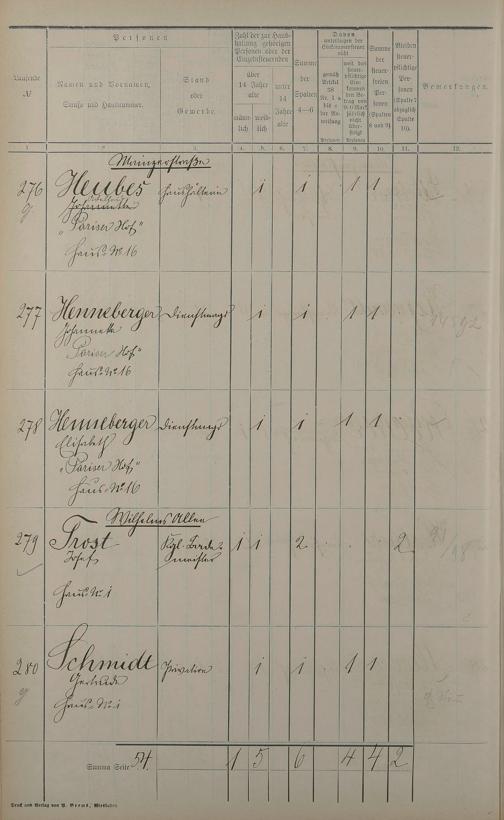 Personen
Zahl der zur Haus-
haltung gehörigen
Personen oder der
Einzelsteuernden
Davon
unterliegen der
Einkommensteuer
nicht
Laufende
№
Namen und Vornamen,
Straße und Hausnummer.
Stand
oder
Gewerbe.
über
14 Jahre
alte
unter
14
Jahre
alte
männ-
lich
weib-
lich
Summe
der
Spalten
4—6
gemäß
Artikel
weil das
Summe
der
steuer-
freien
Per-
sonen
(Spalten
8 und 9).
Bleiben
steuer-
pflichtige
Per-
sonen
(Spalte 7
abzüglich
Spalte
10).
Bemerkungen.
1. 2. 3. 4. 5. 6. 7. 8. 9. 10. 11. 12.
Mainzerstraße
276 Heubes Haushälterin 1 1 1 1
"Pariser Hof"
Haus-№ 16
277 Henneberger Dienstmagd 1 1 1 1
Johannette
"Pariser Hof"
Haus-№ 16
278 Henneberger Dienstmagd 1 1 1 1
Elisabeth
"Pariser Hof"
Haus-№ 16
Wilhelms Allee
279 Trost Kgl. Bade- 1 1 2 2
Josef meister
Haus-№ 1
280 Schmidt 1 1 1 1
Gertrude
Haus-№ 1
Summa Seite 54. 1 5 6 4 4 2
Druck und Verlag von P. Plaum, Wiesbaden